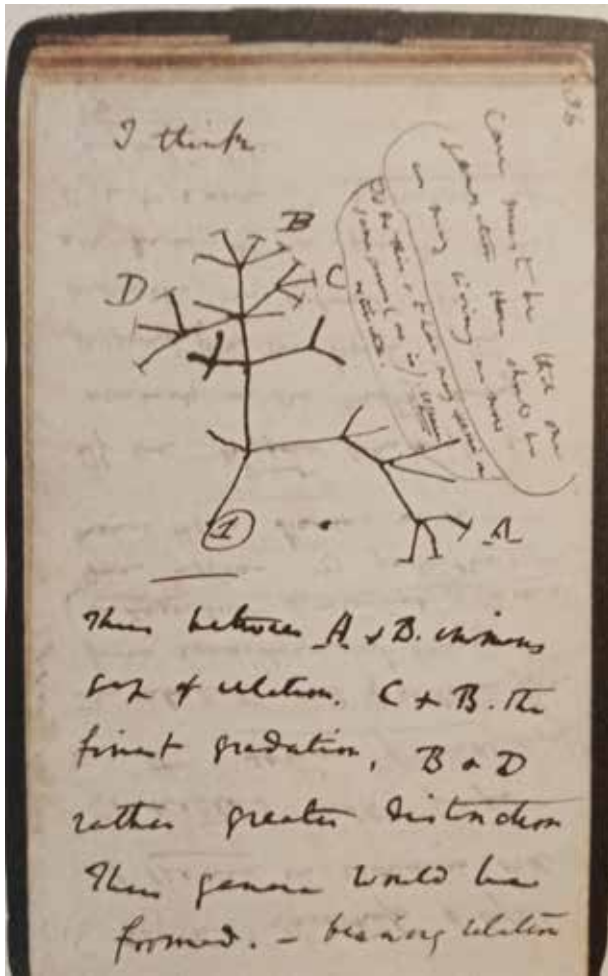 I think
36
Case must be that one
generation then should be
as many living as now
To do this & to have many species in
same genus (as is) requires
extinction.
B
D
C
1
A
Thus between A & B. immense
gap of relation. C & B. the
finest gradation, B & D
rather greater distinction
Thus genera would be
formed. — bearing relation